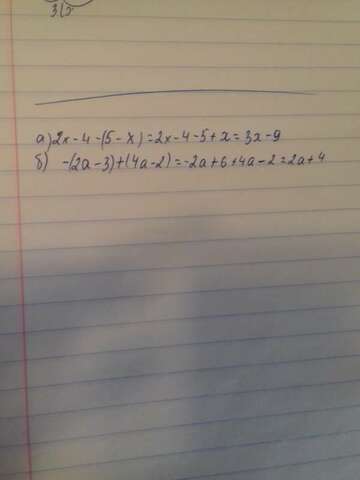 а) 2x - 4 - (5 - x) = 2x - 4 - 5 + x = 3x - 9
б) -(2a - 3) + (4a - 2) = -2a + 6 + 4a - 2 = 2a + 4